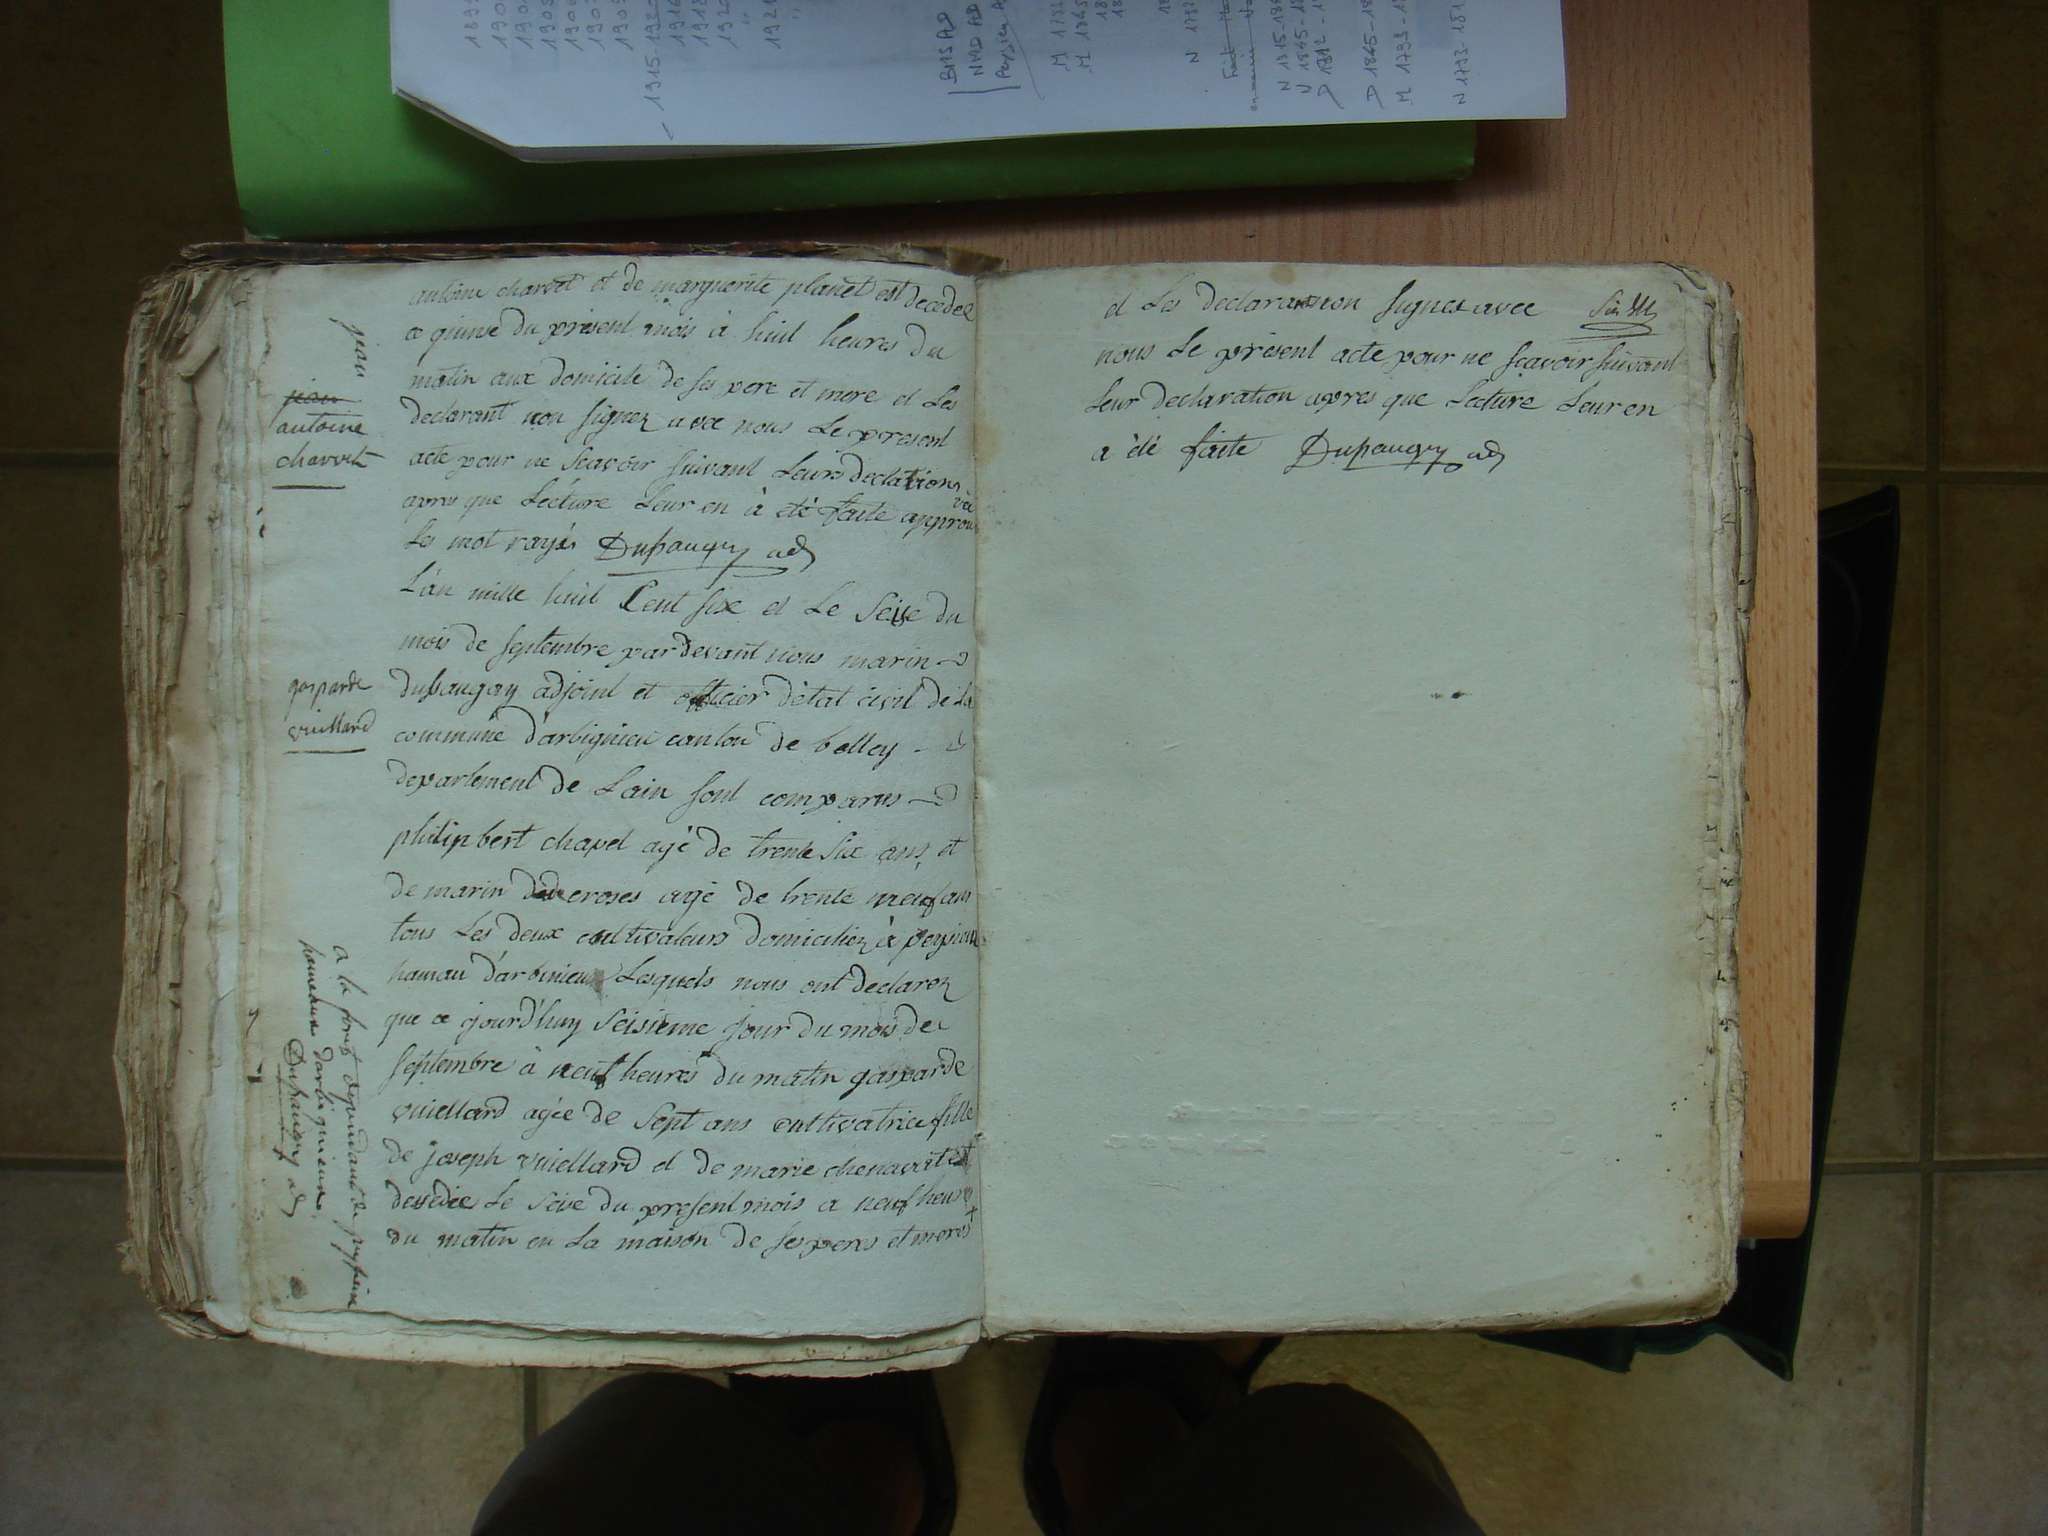 jean
jean
antoine
charvet
antoine charvet et de marguerite planet est decedee
ce quinse du présent mois à huit heures du
matin aux domicile de ses pere et mere et Les
declarant non signez avec nous Le present
acte pour ne scavoir suivant Leurs declations
apres que Lecture Leur en à eté faite approu vée
Les mot rayés Dupaugey adj
L'an mille huit Cent six et Le Seise du
mois de septembre pardevant nous marin
dupaugay adjoint et officier d'état civil de La
commune d'arbignieu canton de belley
departement de Lain sont comparus
philipbert chapel agé de trente six ans et
de marin deroses agé de trente neuf ans
tous Les deux cultivateurs domiciliez à peysieu
hamau d'arbinieu Lesquels nous ont declarez
que ce jourd'huy seisieme jour du mois de
septembre à neuf heures du matin gasparde
vuiellard agée de sept ans cultivatrice fille
de joseph vuiellard et de marie chenavitest
decedée Le seise du present mois a neuf heures
du matin en La maison de ses peres et meres
gasparde
vuillard
a la forest dependant de peysieu
hameaux darbignieux
Dupaugey adj
et Les declaration signes avec
nous Le présent acte pour ne scavoir suivant
Leur declaration apres que Lecture Leur en
a été faite Dupaugey adj
1915-1920
BMS AD
NMD AD
M 1793
N 1793-181